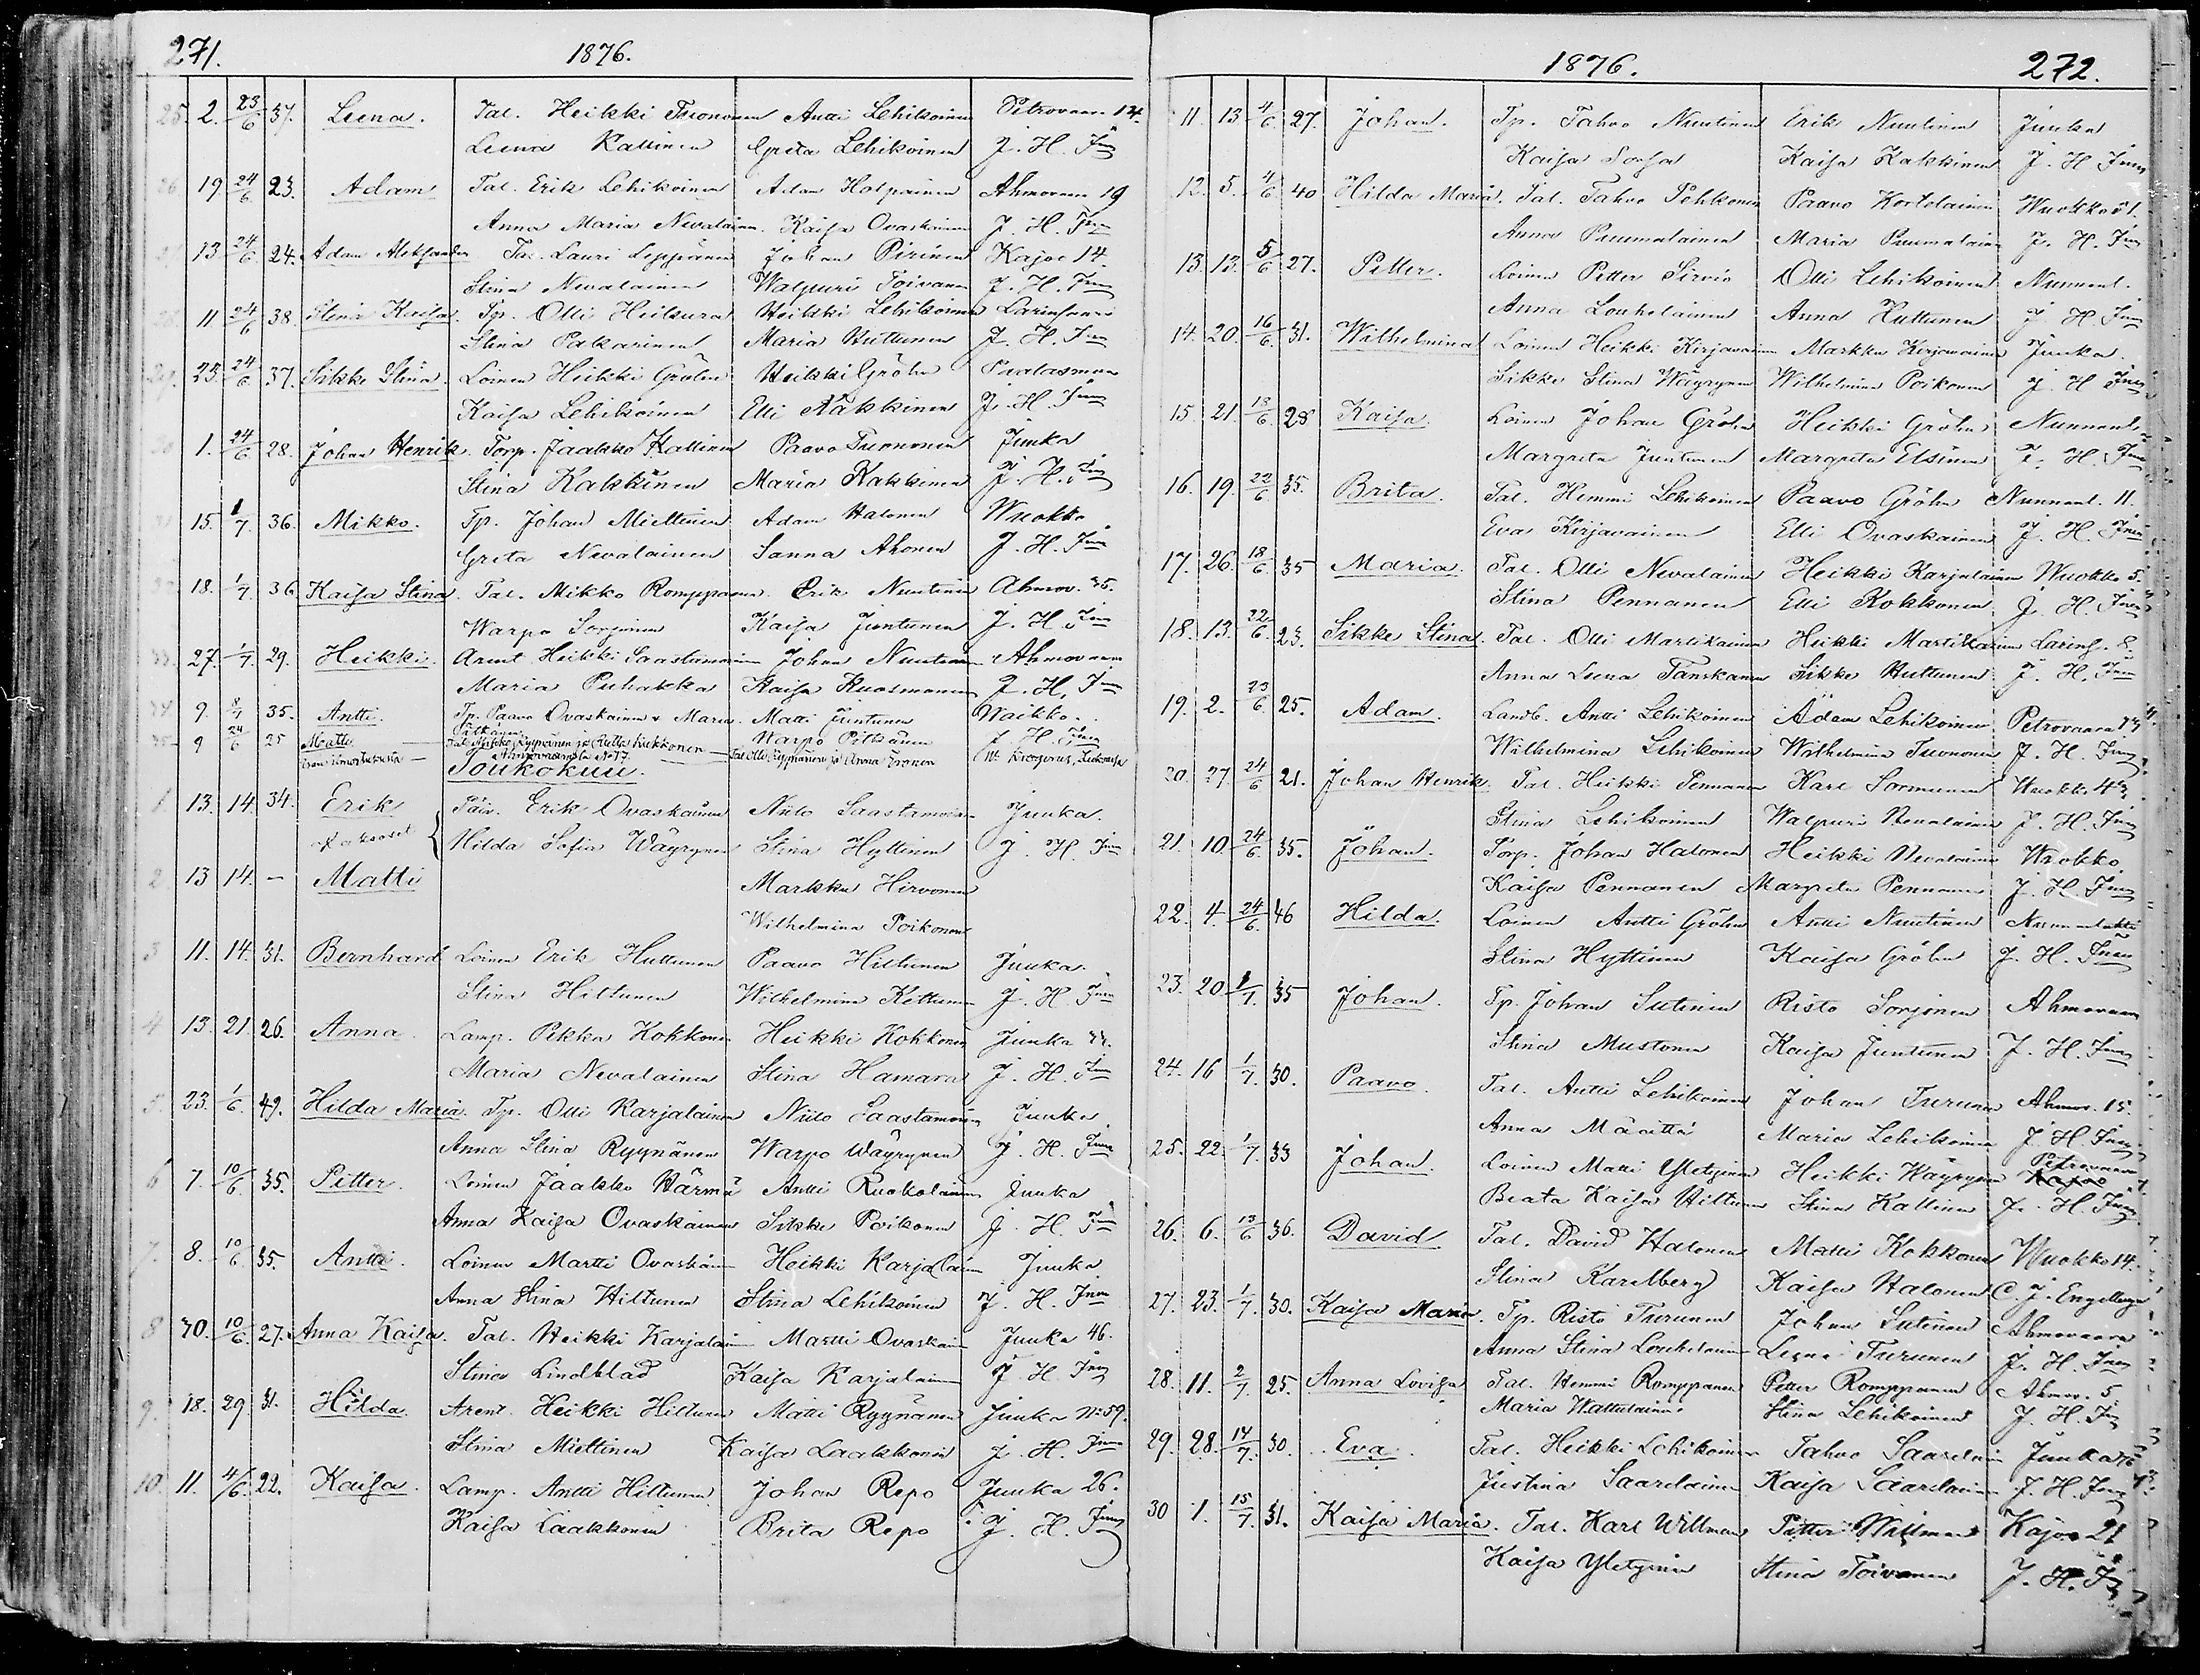 271. 1876.
25. 2. 23/6 37. Leena. Tal. Heikki Turonen Antti Lehikoinen Petrovaara 12.
Leena Kattinen Greta Lehikoinen J. H.
26 19 24/6 23. Adam Tal. Erik Lehikoinen Adam Halpainen Ahmovaara 19
Anna Maria Nevalainen Kaisa Ovaskainen J. H.
13 24/6 24. Adam Aleksander Tal. Lauri Leppänen Johan Pirinen Kajoo 14.
Stina Nevalainen Walpuri Toivanen J. H.
11 24/6 38. Stina Kaisa. Tp. Olli Heiskura Heikki Lehikoinen Larinsaari
Stina Pakarinen Maria Huttunen J. H.
23 24/6 37. Sikke Stina Loinen Heikki Gröhn Heikki Gröhn
Kaisa Lehikoinen Elli Näkkinen J. H.
1. 24/6 28. Johan Henrik. Torp. Jaakko Kattinen Paavo Turonen Juuka
Stina Kakkinen Maria Kakkinen J. H.
15. 1/7. 36. Mikko. Tp. Johan Miettinen Adam Halonen Wuokko
Greta Nevalainen Sanna Ahonen J. H.
18. 1/7 36 Kaisa Stina. Tal. Mikko Romppanen Erik Nuutinen Ahmov. 35.
Warpo Sorjonen Kaisa Juntunen J. H.
27. 1/7. 29. Heikki. Arent Heikki Saastamoinen Johan Nuutinen Ahmovaara
Maria Puhakka Kaisa Kuosmanen J. H.
9. 8/7 35. Antti. Tp. Paavo Ovaskainen & Maria Matti Juntunen Waikko.
Pitkänen Warpo Pitkänen J. H.
9 24/6 25 Matti Tal. Mikko Ryynänen ja Riitta Kiekkonen Tal. Olli Ryynänen ja Anna Eronen
Ahmovaarasta No 17.
Toukokuu.
1 13. 14. 34. Erik Erik Ovaskainen Niilo Saastamoinen Juuka.
Kaksoset Hilda Sofia Wäyrynen Stina Hyttinen J. H.
2. 13 14. — Matti Markku Hirvonen
Wilhelmina Poikonen
3 11. 14. 31. Bernhard Loinen Erik Huttunen Paavo Hiltunen Juuka.
Stina Hiltunen Wilhelmina Kettunen J. H.
4 13. 21. 26. Anna. Lamp. Pekka Kokkonen Heikki Kokkonen Juuka
Maria Nevalainen Stina Hamara J. H.
5. 23. 1/6. 49. Hilda Maria. Tp. Olli Karjalainen Niilo Saastamoinen Juuka
Anna Stina Ryynänen Warpo Wäyrynen J. H.
6 7. 10/6. 35. Petter. Loinen Jaakko Härmä Antti Ruokolainen Juuka
Anna Kaisa Ovaskainen Sikke Poikonen J. H.
7. 8. 10/6. 35. Antti. Loinen Martti Ovaskainen Heikki Karjalainen Juuka
Anna Stina Hiltunen Stina Lehikoinen J. H.
8 30. 10/6. 27. Anna Kaisa. Tal. Heikki Karjalainen Martti Ovaskainen Juuka 46.
Stina Lindblad Kaisa Karjalainen J. H.
9. 18. 29. 31. Hilda. Arent. Heikki Hiltunen Matti Ryynänen Juuka No 59.
Stina Miettinen Kaisa Laakkonen J. H.
10 11. 4/6. 22. Kaisa. Lamp. Antti Hiltunen Johan Repo Juuka 26.
Kaisa Laakkonen Brita Repo J. H.
1876. 272.
11. 13 4/6 27. Johan. Tp. Tahvo Nuutinen Erik Nuutinen Juuka
Kaisa Kaisa Kakkinen J. H.
12. 5. 4/6. 40 Hilda Maria. Tal. Tahvo Pehkonen Paavo Kortelainen Wuokko 51.
Anna Puumalainen Maria Puumalainen J. H.
13. 13. 5/6 27. Petter. Loinen Petter Sirviö Olli Lehikoinen Nunnanl.
Anna Louhelainen Anna Huttunen J. H.
14. 20. 16/6. 31. Wilhelmina Loinen Heikki Kirjavainen Markku Kirjavainen Juuka.
Sikke Stina Wäyrynen Wilhelmina Poikonen J. H.
15. 21. 18/6. 28 Kaisa. Loinen Johan Gröhn Heikki Gröhn Nunnanl.
Margreta Juntunen Margreta Elsinen J. H.
16. 19. 22/6 35. Brita. Tal. Hemmi Lehikoinen Paavo Gröhn Nunnanl. 11.
Eva Kirjavainen Elli Ovaskainen J. H.
17. 26. 18/6 35 Maria. Tal. Olli Nevalainen Heikki Karjalainen Wuokko 5.
Stina Pennanen Elli Kokkonen J. H.
18. 13. 22/6. 23. Sikke Stina. Tal. Olli Martikainen Heikki Martikainen Larins. 8.
Anna Leena Tanskanen Sikke Huttunen J. H.
19. 2. 23/6. 25. Adam. Landb. Antti Lehikoinen Adam Lehikoinen Petrovaara
Wilhelmina Lehikoinen Wilhelmina Turonen J. H.
20. 27. 24/6 21. Johan Henrik. Tal. Heikki Pennanen Karl Sormunen Wuokko
Stina Lehikoinen Walpuri Nevalainen J. H.
21. 10. 24/6. 35. Johan. Torp. Johan Halonen Heikki Nevalainen Wuokko
Kaisa Pennanen Margreta Pennanen J. H.
22. 4. 24/6. 46 Hilda. Loinen Antti Gröhn Antti Nuutinen Nunnanlahti
Stina Hyttinen Kaisa Gröhn J. H.
23. 20. 1/7. 35 Johan. Tp. Johan Sutinen Risto Sorjonen Ahmovaara
Stina Mustonen Kaisa Juntunen J. H.
24. 16 1/7. 30. Paavo. Tal. Antti Lehikoinen Johan Turunen Ahmov. 15.
Anna Määttä Maria Lehikoinen J. H.
25. 22. 1/7. 33 Johan. Loinen Matti Yletyinen Heikki Wäyrynen Petrovaara Kajoo
Beata Kaisa Hiltunen Stina Kattinen J. H.
26. 6. 13/6 36. David Tal. David Halonen Matti Kokkonen Wuokko 14.
Stina Karlberg Kaisa Halonen C. J. Engelberg
27. 23. 1/7. 30. Kaisa Maria. Tp. Risto Turunen Johan Sutinen Ahmovaara
Anna Stina Louhelainen Leena Turunen J. H.
28. 11. 2/7. 25. Anna Lovisa Tal. Hemmi Romppanen Petter Romppanen Ahmov. 5
Maria Wattulainen Stina Lehikoinen J. H.
29. 28. 14/7. 30. Eva. Tal. Heikki Lehikoinen Tahvo Saarelainen Juuka
Justina Saarelainen Kaisa Saarelainen J. H.
30 1. 15/7. 31. Kaisa Maria. Tal. Karl Willman Petter Willman Kajoo 21
Kaisa Yletyinen Stina Toivanen J. H.